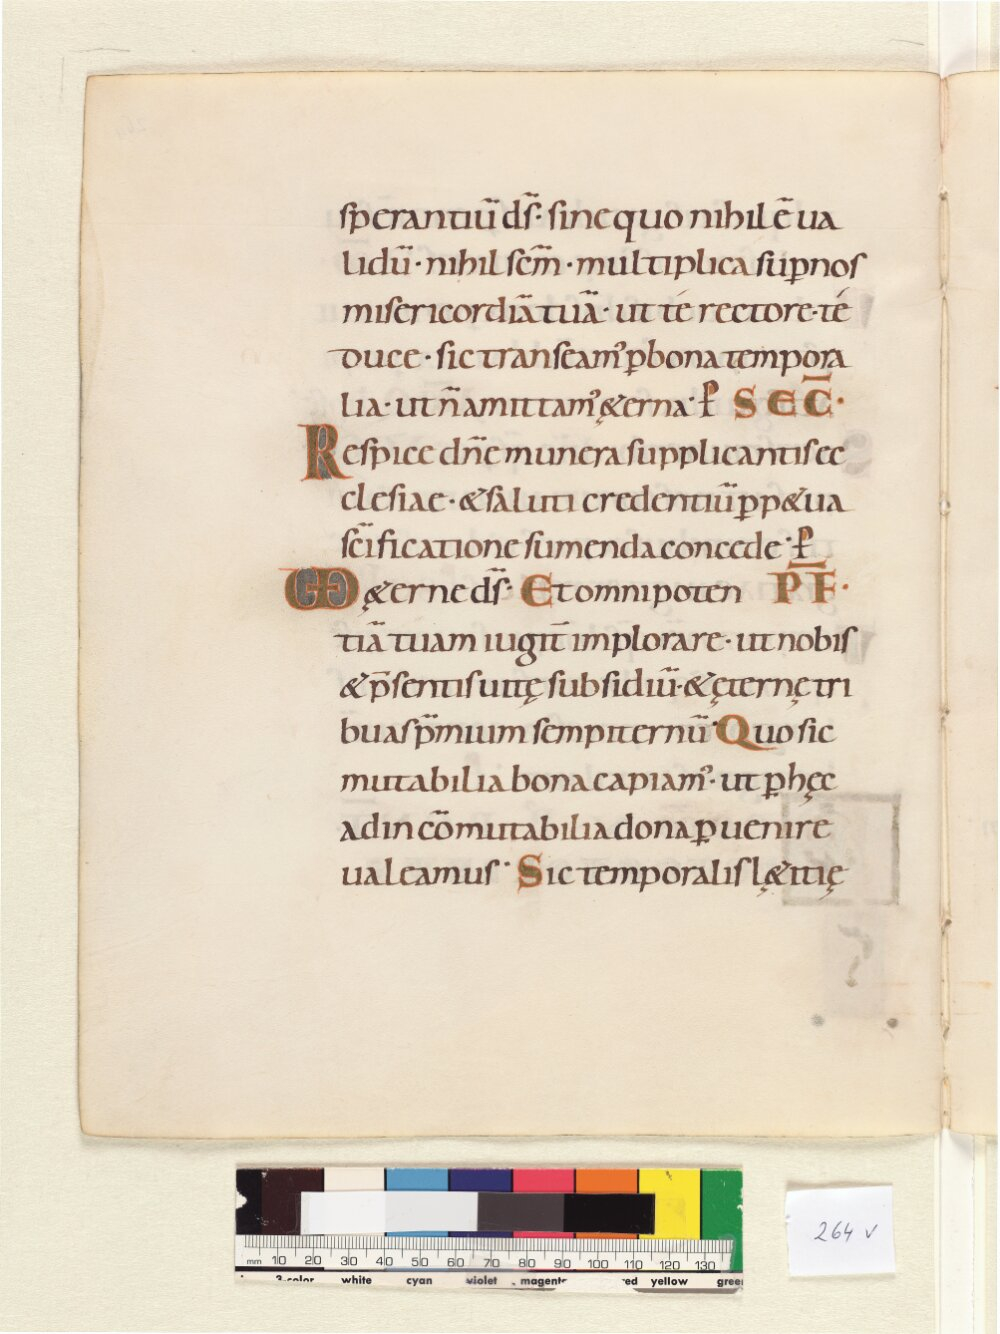 sperantiū ds̄· sine quo nihil ē ua
lidū· nihil scm̄· multiplica sup̱ nos
misericordiā tuā· ut té rectore· té
duce· sic transeam᾿ p̱ bona tempora
lia· ut n̄ amittam᾿ &erna· ꝑ SEC̄·
Respice dn̄e munera supplicantis ec
clesiae· & saluti credentiū p̱p&ua
sc̄ificatione sumenda concede· ꝑ
UD &erne ds̄· Et omnipoten P̄F̄·
tiā tuam iugit̄ implorare· ut nobis
& p̄sentis uitę subsidiū· & ęternę tri
buas p̄mium sempiternū· Quo sic
mutabilia bona capiam᾿· ut p̱ hęc
ad incōmutabilia dona p̱uenire
ualeamus· Sic temporalis lę&itię
mm 10 20 30 40 50 60 70 80 90 100 110 120 130
3-color white cyan violet magent red yellow gree
264 v